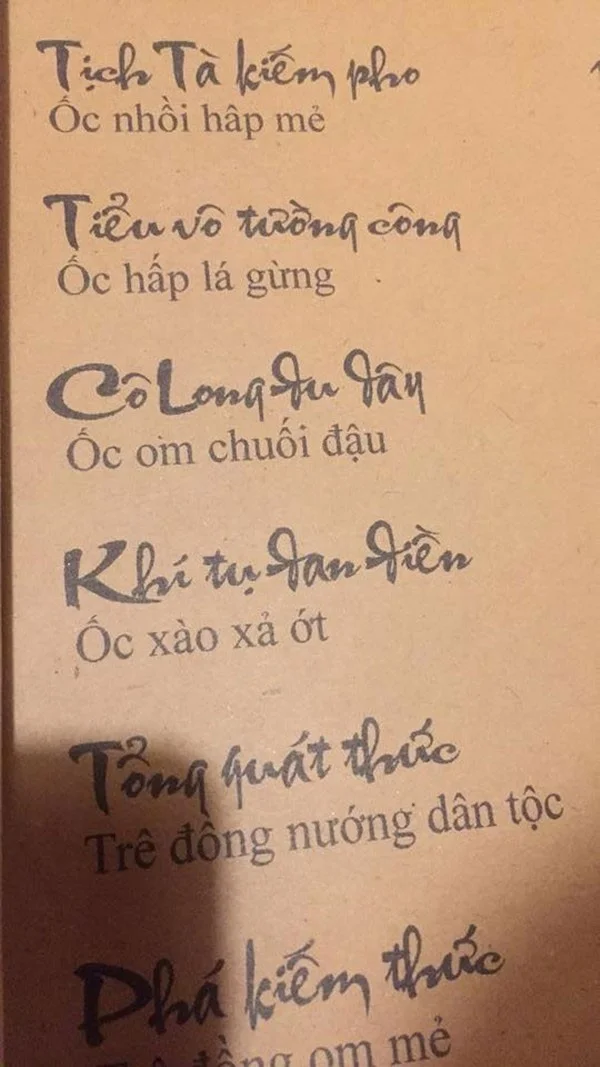 Tịch Tà kiếm pho
Ốc nhồi hâp mẻ
Tiểu vô tường công
Ốc hấp lá gừng
Cô Long đu đây
Ốc om chuối đậu
Khí tụ đan điền
Ốc xào xả ớt
Tổng quát thức
Trê đồng nướng dân tộc
Phá kiếm thức
Trê đồng om mẻ